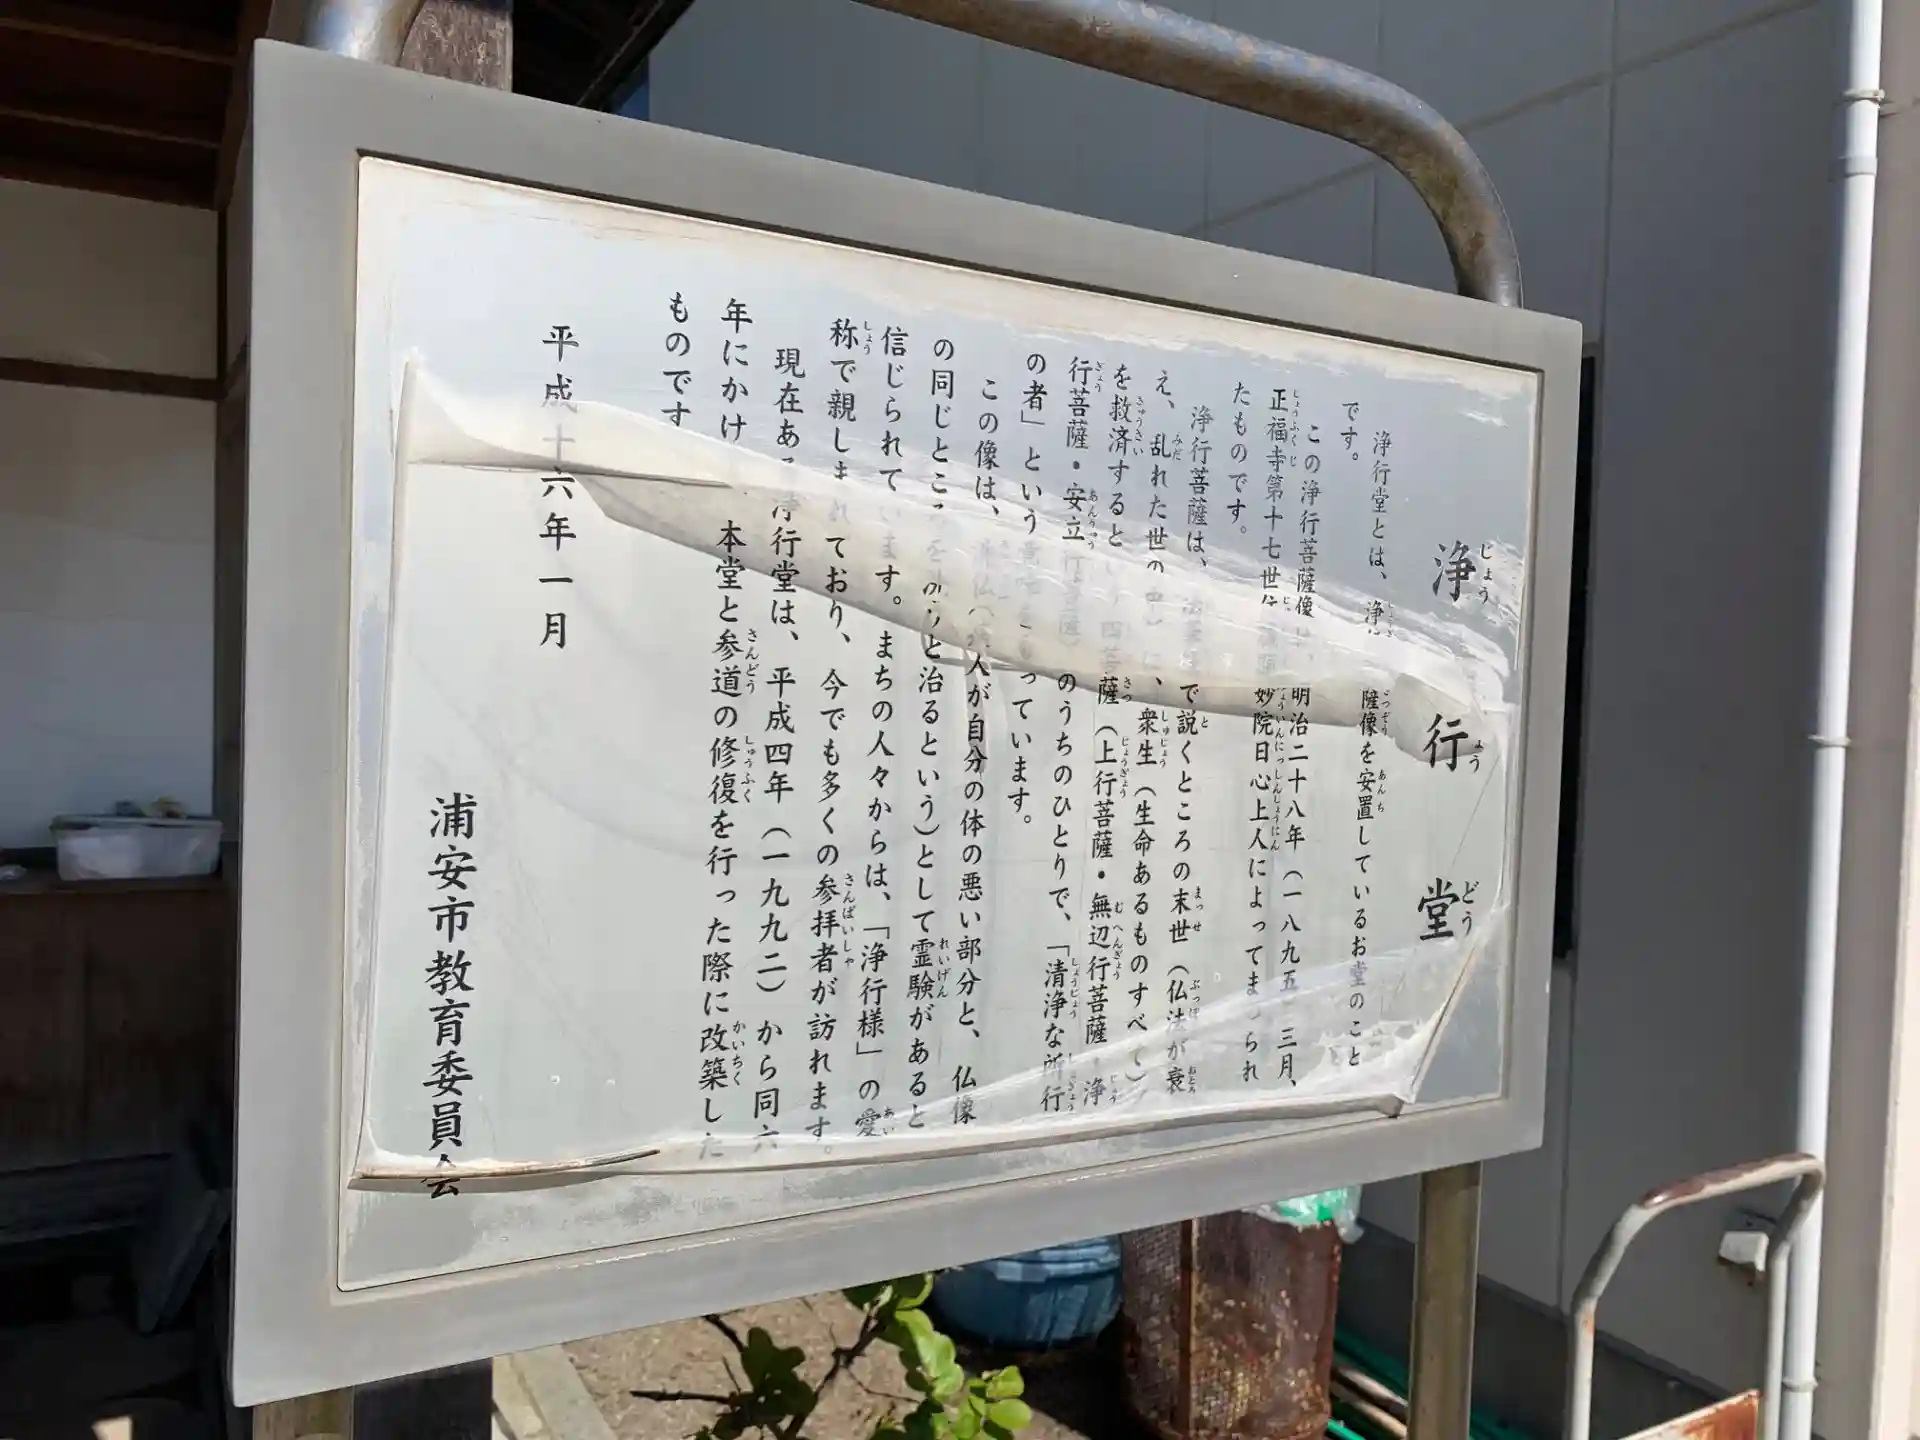 浄行堂
浄行堂とは、浄 薩像を安置しているお堂のこと
です。
この浄行菩薩像 、明治二十八年(一八九五 三月、
正福寺第十七世 妙院日心上人によってま られ
たものです。
浄行菩薩は、 で説くところの末世(仏法が衰
え、乱れた世の中)に、衆生(生命あるものすべて)
を救済すると 四菩薩(上行菩薩・無辺行菩薩・浄
行菩薩・安立行菩薩)のうちのひとりで、「清浄な所行
の者」という っています。
この像は、 仏( 人が自分の体の悪い部分と、仏像
の同じところを うと治るという)として霊験があると
信じられています。まちの人々からは、「浄行様」の愛
称で親しまれており、今でも多くの参拝者が訪れます。
現在ある浄行堂は、平成四年(一九九二)から同六
年にかけ 本堂と参道の修復を行った際に改築した
ものです
平成十六年一月
浦安市教育委員会